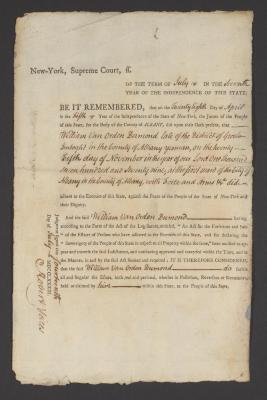 New-York, Supreme Court, ss.
OF THE TERM OF July IN THE Seventh
YEAR OF THE INDEPENDENCE OF THIS STATE;
BE IT REMEMBERED, that on the Twenty Eighth Day of April
in the fifth Year of the Independence of the State of New-York, the Jurors of the People
of this State, for the Body of the County of ALBANY, did upon their Oath present, that
William Van Orden Dumond late of the District of Great
Imboght in the County of Albany yeoman, on the twenty
Fifth day of November in the year of our Lord One thousand
Seven hundred and Seventy nine, at the first ward of the City of
Albany in the County of Albany, with Force and Arms &c. did
adhere to the Enemies of this State, against the Peace of the People of the State of New-York and
their Dignity:
And the said William Van Orden Dumond having
according to the Form of the Act of the Legislature, entitled, "An Act for the Forfeiture and Sale
"of the Estates of Persons who have adhered to the Enemies of this State, and for declaring the
"Sovereignty of the People of this State in respect to all Property within the same,"
and in the
Manner, in and by the said Act directed and required; IT IS THEREFORE CONSIDERED,
that the said William Van Orden Dumond do forfeit
all and singular the Estate, both real and personal, whether in Possession, Reversion or Remainder,
held or claimed by him within this State, to the People of this State.
Day of July MDCCLXXXIII
Robert Yates